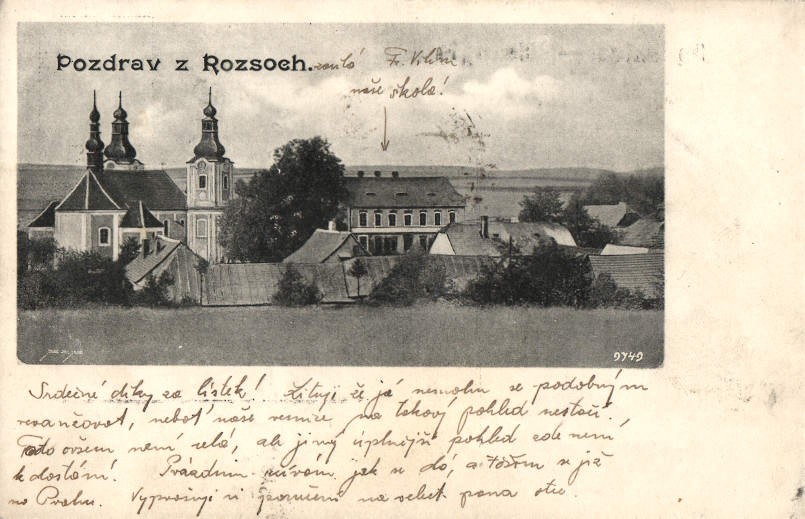 Pozdrav z Rozsoch.
naše škola!
9749
Srdečné díky za lístek! Lituji že já nemohu se podobným
revančovat, neboť naše vesnice, na takový pohled nestačí.
ovšem není celá, ale jiný úplnější pohled zde není
k dostání. Prázdnin užívám jak se dá, a těším se již
na Prahu. Vyprošuji si poručení na velet. pana otce.